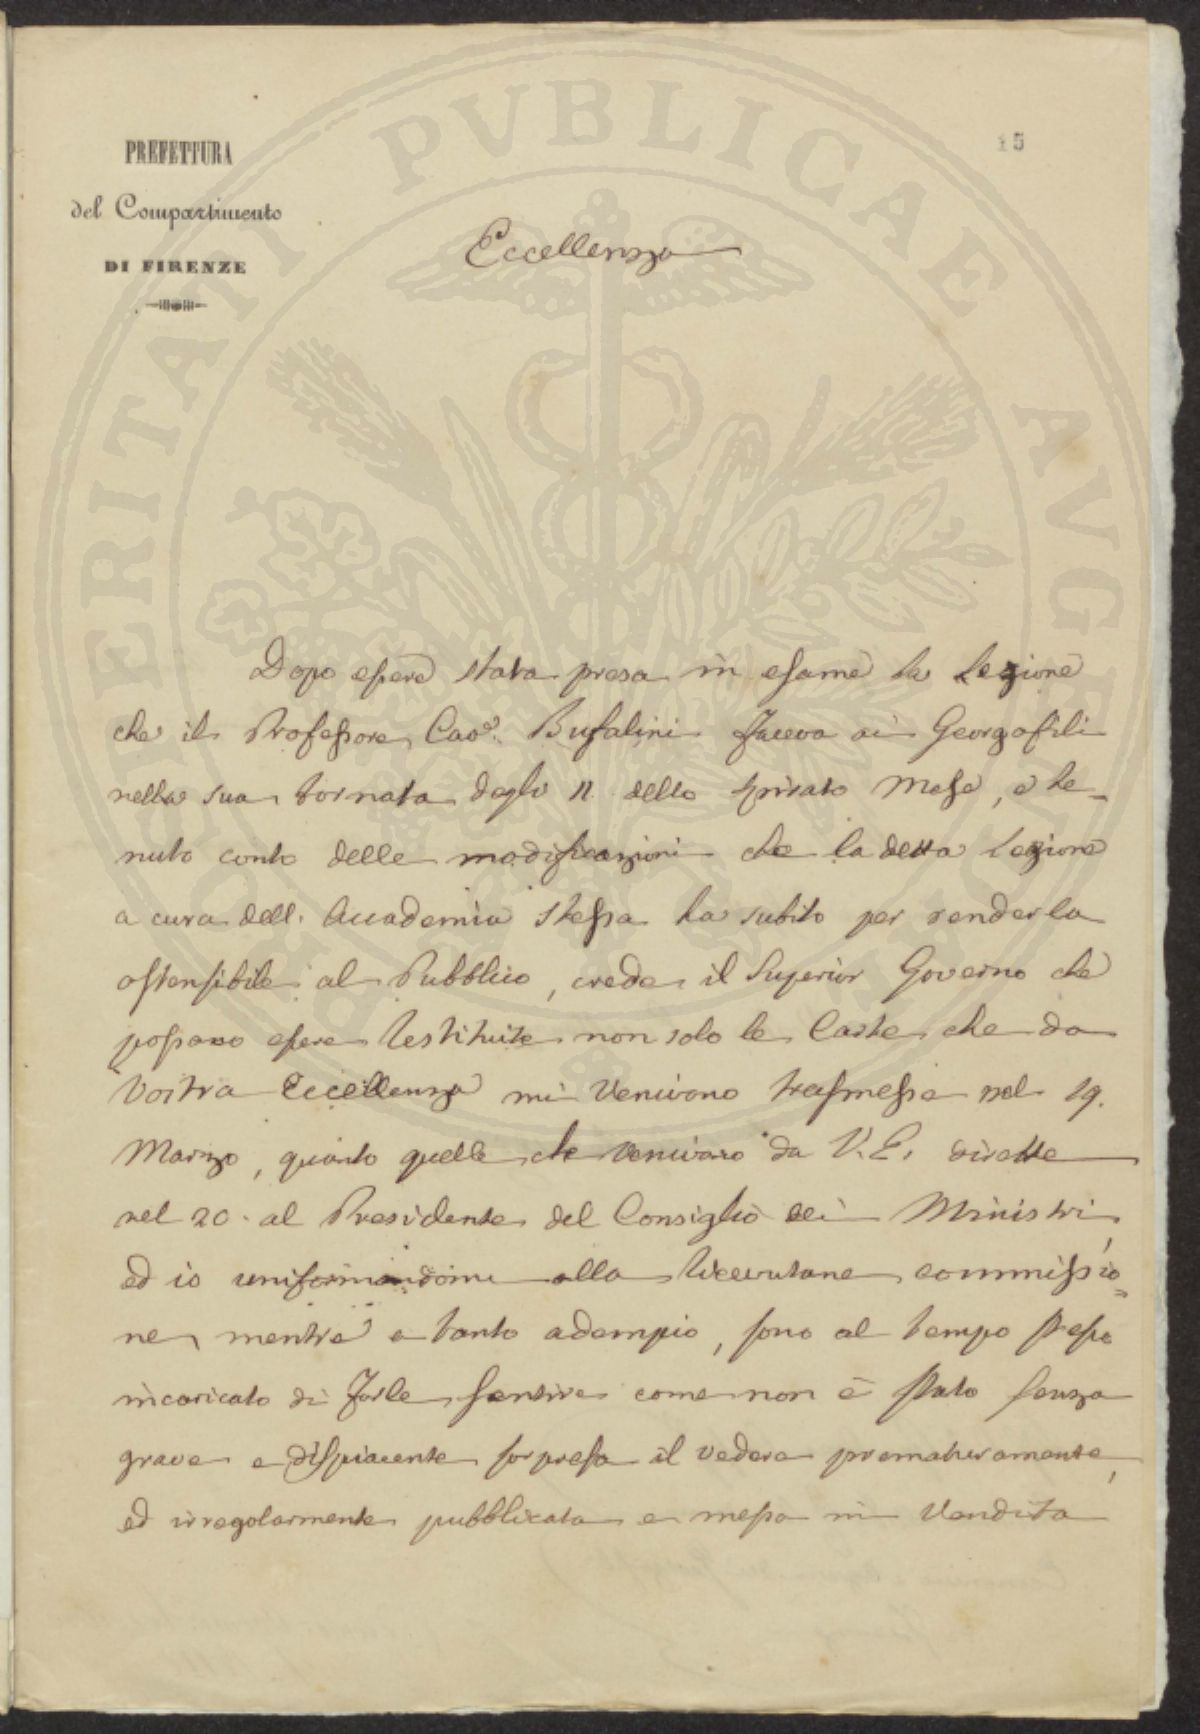 PREFETTURA
del Compartimento
DI FIRENZE
15
PROSPERITATI PVBLICAE AVGENDAE
Eccellenza
Dopo essere stata presa in esame la Lezione
che il Professore Cav.e Bufalini faceva ai Georgofili
nella sua tornata degli 11 dello spirato Mese, e te=
nuto conto delle modificazioni che la detta Lezione
a cura dell'Accademia stessa ha subito per renderla
ostensibile al Pubblico, crede il Superior Governo che
possano essere restituite non solo le Carte che da
Vostra Eccellenza mi venivano trasmesse nel 19.
Marzo, quanto quelle che venivano da V. E. dirette
nel 20. al Presidente del Consiglio dei Ministri,
ed io uniformandomi alla ricevutane commissio=
ne, mentre a tanto adempio, sono al tempo stesso
incaricato di farle sentire come non è stato senza
grave e dispiacente sorpresa il vedere prematuramente,
ed irregolarmente pubblicata e messa in vendita